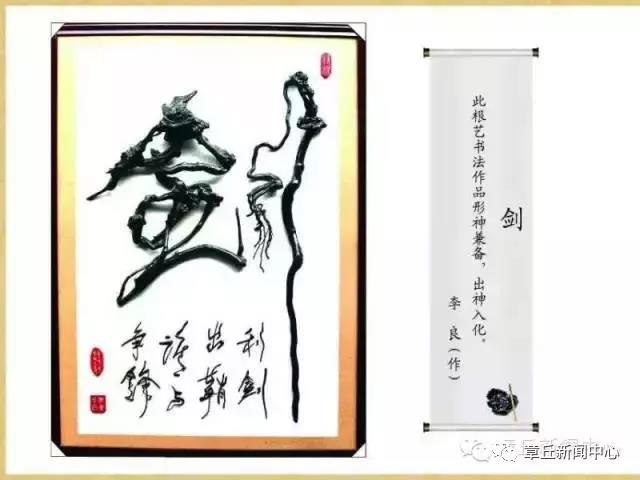 劍
利剑
出鞘
谁与
争锋
剑
此根艺书法作品形神兼备，出神入化。
李良（作）
章丘新闻中心
章丘新闻中心